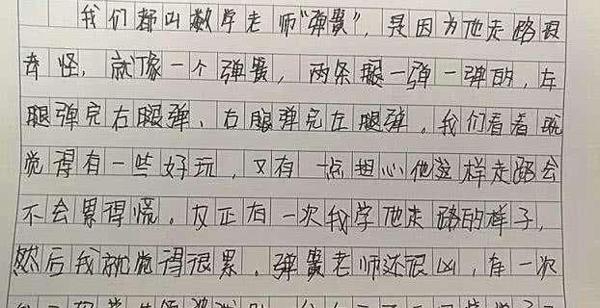 我们都叫数学老师“弹簧”，是因为他走路很
奇怪，就像一个弹簧，两条腿一弹一弹的，左
腿弹完右腿弹、右腿弹完左腿弹，我们看着既
觉得有一些好玩，又有一点担心他这样走路会
不会累得慌，反正有一次我学他走路的样子，
然后我就觉得很累，弹簧老师还很凶，有一次